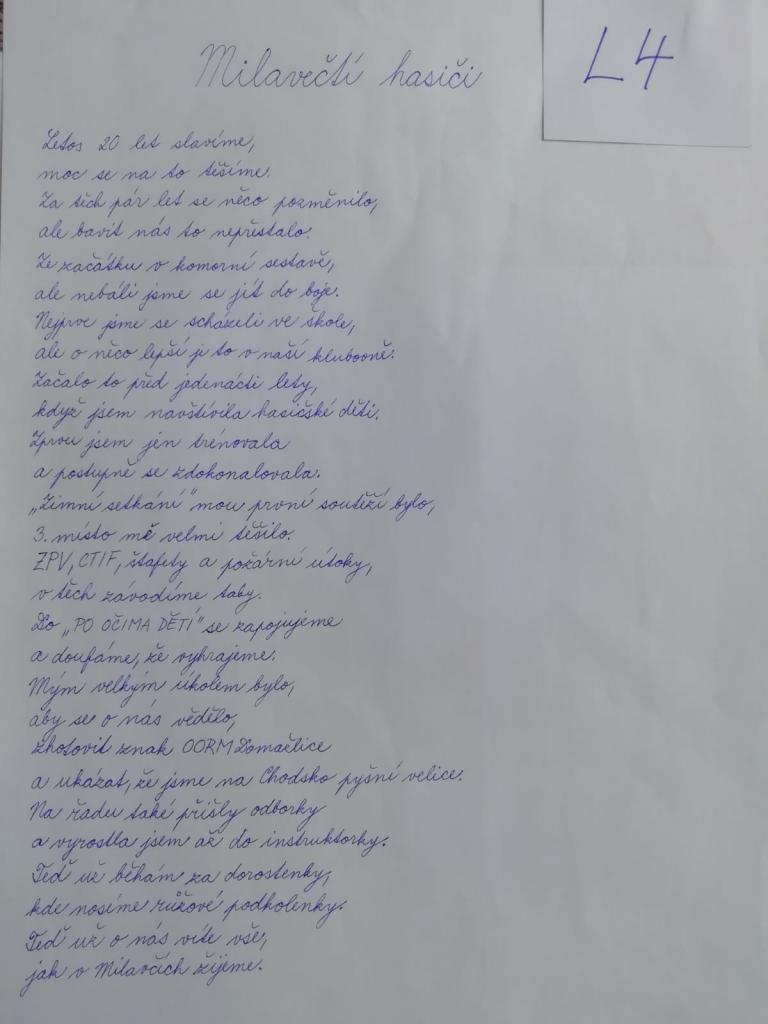 Milavečtí hasiči
L4
Letos 20 let slavíme,
moc se na to těšíme.
Za těch pár let se něco pozměnilo,
ale bavit nás to nepřestalo.
Ze začátku v komorní sestavě,
ale nebáli jsme se jít do boje.
Nejprve jsme se scházeli ve škole,
ale o něco lepší je to v naší klubovně.
Začalo to před jedenácti lety,
když jsem navštívila hasičské děti.
Zprvu jsem jen trénovala
a postupně se zdokonalovala.
„Zimní setkání" mou první soutěží bylo,
3. místo mě velmi těšilo.
ZPV, CTIF, štafety a požární útoky,
v těch závodíme taby.
Do „PO OČIMA DĚTÍ" se zapojujeme
a doufáme, že vyhrajeme.
Mým velkým úkolem bylo,
aby se o nás vědělo,
zhotovit znak OORM Domažlice
a ukázat, že jsme na Chodsko pyšní velice.
Na řadu také přišly odborky
a vyrostla jsem až do instruktorky.
Teď už běhám za dorostenky,
kde nosíme růžové podkolenky.
Teď už o nás víte vše,
jak v Milavčích žijeme.